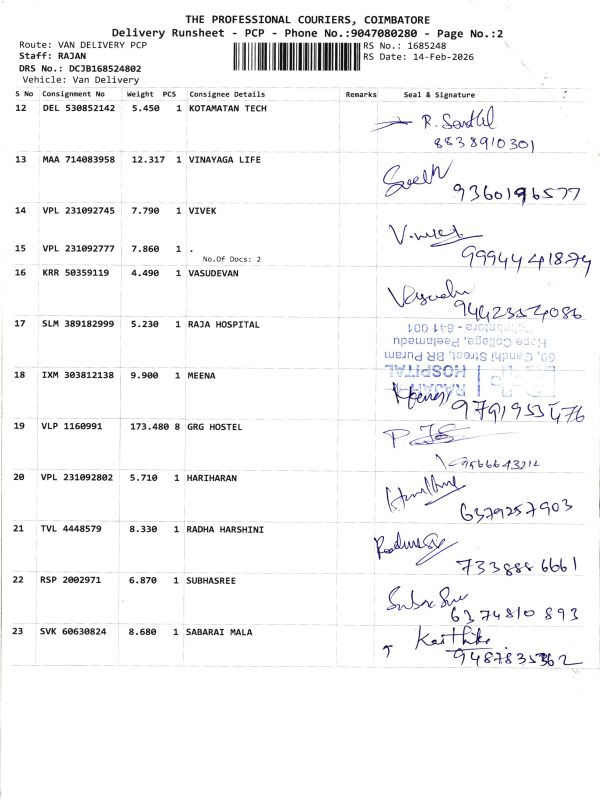 THE PROFESSIONAL COURIERS, COIMBATORE
Delivery Runsheet - PCP - Phone No.:9047080280 - Page No.:2
Route: VAN DELIVERY PCP
RS No.: 1685248
Staff: RAJAN
RS Date: 14-Feb-2026
DRS No.: DCJB168524802
Vehicle: Van Delivery
S No Consignment No Weight PCS Consignee Details Remarks Seal & Signature
12 DEL 530852142 5.450 1 KOTAMATAN TECH
R. Senthil
8838910301
13 MAA 714083958 12.317 1 VINAYAGA LIFE
9360196577
14 VPL 231092745 7.790 1 VIVEK
15 VPL 231092777 7.860 1 .
No.Of Docs: 2
9994441874
16 KRR 50359119 4.490 1 VASUDEVAN
Vasudev
9442354086
17 SLM 389182999 5.230 1 RAJA HOSPITAL
RAJAH
HOSPITAL
60, Gandhi Street, BR Puram
Hope College, Peelamedu
Coimbatore - 641 001
18 IXM 303812138 9.900 1 MEENA
9791953476
19 VLP 1160991 173.480 8 GRG HOSTEL
20 VPL 231092802 5.710 1 HARIHARAN
6379257903
21 TVL 4448579 8.330 1 RADHA HARSHINI
7338886661
22 RSP 2002971 6.870 1 SUBHASREE
6374810893
23 SVK 60630824 8.680 1 SABARAI MALA
Karthika